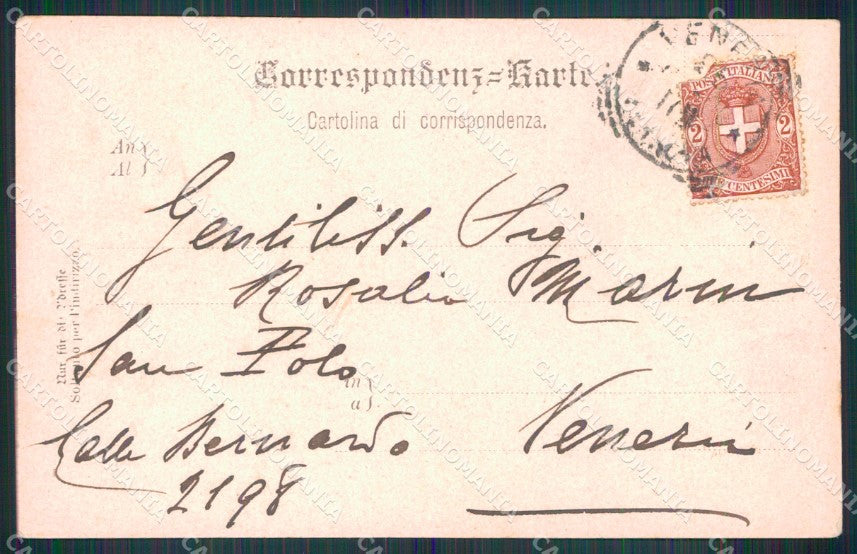 Correspondenz=Karte.
Cartolina di corrispondenza.
POSTE ITALIANE
2 2
CENTESIMI
An
Al
Gentiliss. Sig.
Rosalia Marin
San Polo
in
a
Calle Bernardo Venezia
2198
Nur für die Adresse
Soltanto per l'indirizzo.
CARTOLINOMANIA